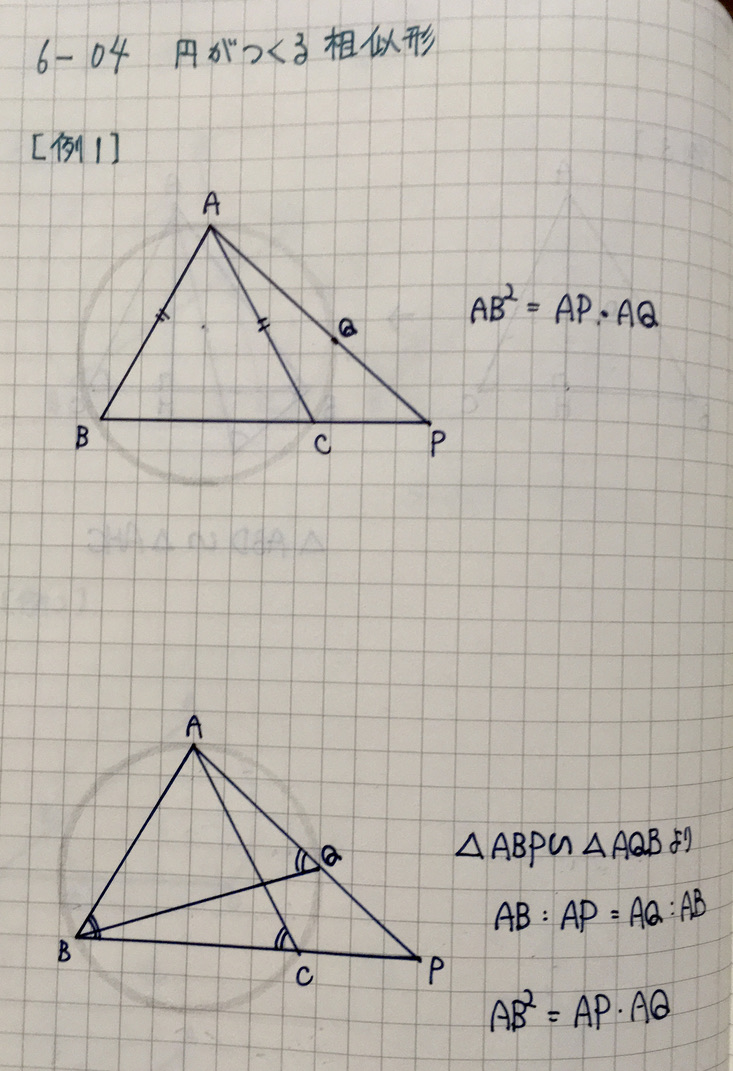 6-04 円がつくる相似形
[例1]
A
AB² = AP・AQ
Q
B
C
P
A
△ABP∽△AQBより
Q
AB:AP = AQ:AB
B
C
P
AB² = AP・AQ